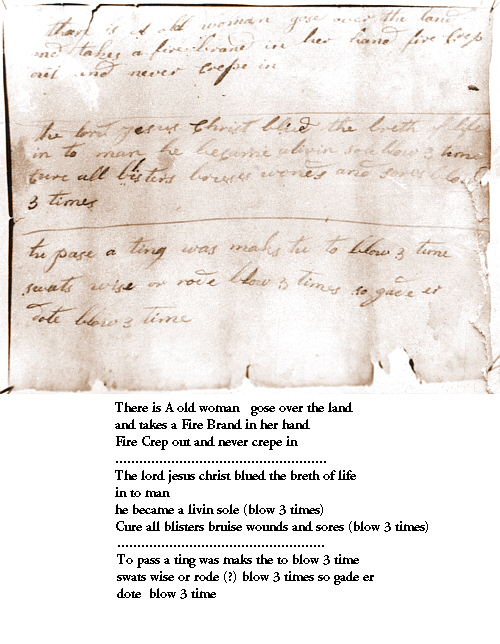 ther is A old woman gose over the land
and takes a fire brand in her hand fire Crep
out and never crepe in
the lord jesus Christ blued the breth of life
in to man he became alivin sole blow 3 time
Cure all blisters bruses wonds and sores blow
3 times
to pase a ting was maks the to blow 3 time
swats wise or rode blow 3 times so gade er
dote blow 3 time
There is A old woman gose over the land
and takes a Fire Brand in her hand
Fire Crep out and never crepe in
.....................................................
The lord jesus christ blued the breth of life
in to man
he became a livin sole (blow 3 times)
Cure all blisters bruise wounds and sores (blow 3 times)
....................................................
To pass a ting was maks the to blow 3 time
swats wise or rode (?) blow 3 times so gade er
dote blow 3 time